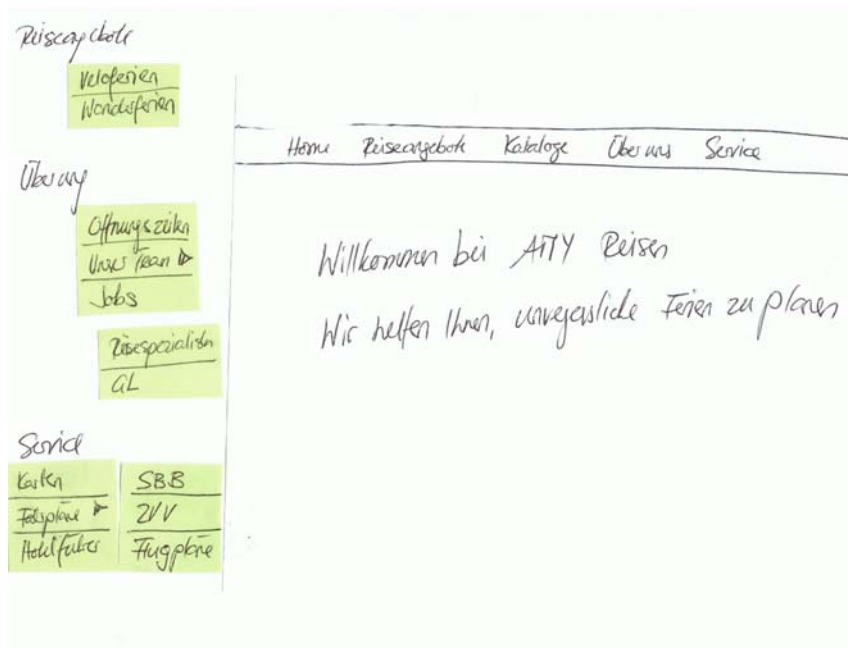 Reiseangebote
Veloferien
Wanderferien
Über uns
Öffnungszeiten
Unser Team ▶
Jobs
Reisespezialisten
GL
Service
Karten
Fahrpläne ▶
Hotelführer
SBB
ZVV
Flugpläne
Home Reiseangebote Kataloge Über uns Service
Willkommen bei Reisen
Wir helfen Ihnen, unvergessliche Ferien zu planen